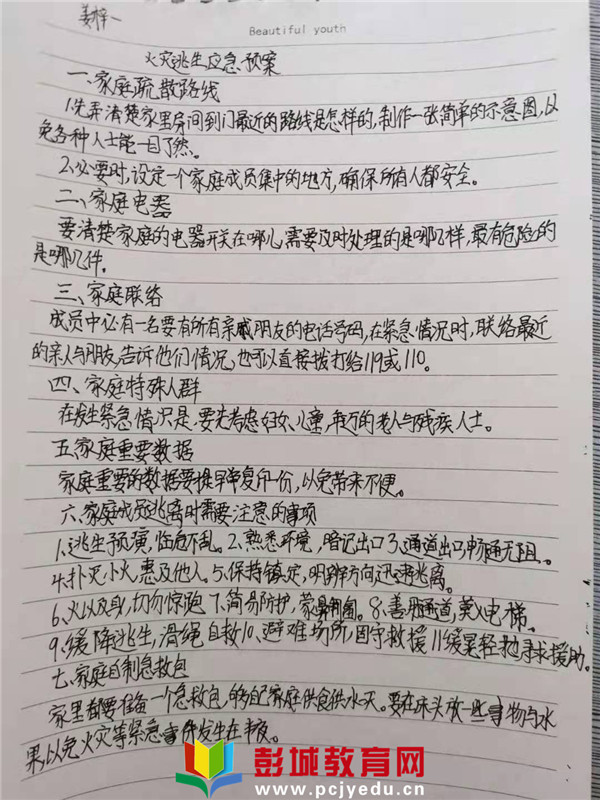 姜梓一
Beautiful youth
火灾逃生应急预案
一、家庭疏散路线
1.先弄清楚家里房间到门最近的路线是怎样的,制作一张简单的示意图,以
免各种人士能一目了然。
2.必要时,设定一个家庭成员集中的地方,确保所有人都安全。
二、家庭电器
要清楚家庭的电器开关在哪儿,需要及时处理的是哪几样,最有危险的
是哪几件。
三、家庭联络
成员中必有一名要有所有亲戚朋友的电话号码,在紧急情况时,联络最近
的亲人与朋友,告诉他们情况,也可以直接拨打给119或110。
四、家庭特殊人群
在发生紧急情况是,要先考虑妇女、儿童,年迈的老人与残疾人士。
五、家庭重要数据
家庭重要的数据要提早复印一份,以免带来不便。
六、家庭成员逃离时需要注意的事项
1、逃生预演,临危不乱。2、熟悉环境,暗记出口3、通道出口,畅通无阻。
4.扑灭小火,惠及他人。5、保持镇定,明辨方向,迅速撤离。
6、火以及身,切勿惊跑 7、简易防护,蒙鼻匍匐。8、善用通道,莫入电梯。
9、缓降逃生,滑绳自救10、避难场所,固守救援 11缓晃轻抛寻求援助。
七、家庭自制急救包
家里都要准备一个急救包,够自己家庭供食供水天。要在床头放一些食物与水
果,以免火灾等紧急事件发生在半夜。
彭城教育网
www.pcjyedu.cn